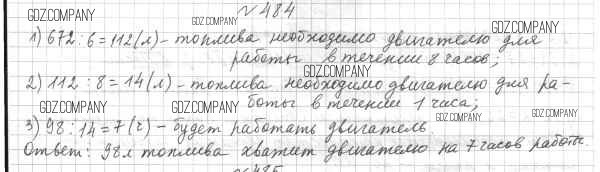 № 484
GDZ.COMPANY GDZ.COMPANY GDZ.COMPANY
1) 672 : 6 = 112 (л) - топлива необходимо двигателю для
работы в течении 8 часов;
GDZ.COMPANY
2) 112 : 8 = 14 (л) - топлива необходимо двигателю для ра-
GDZ.COMPANY GDZ.COMPANY боты в течении 1 часа;
GDZ.COMPANY GDZ.COMPANY
3) 98 : 14 = 7 (ч) - будет работать двигатель.
Ответ: 98 л топлива хватит двигателю на 7 часов работы.
№ 485